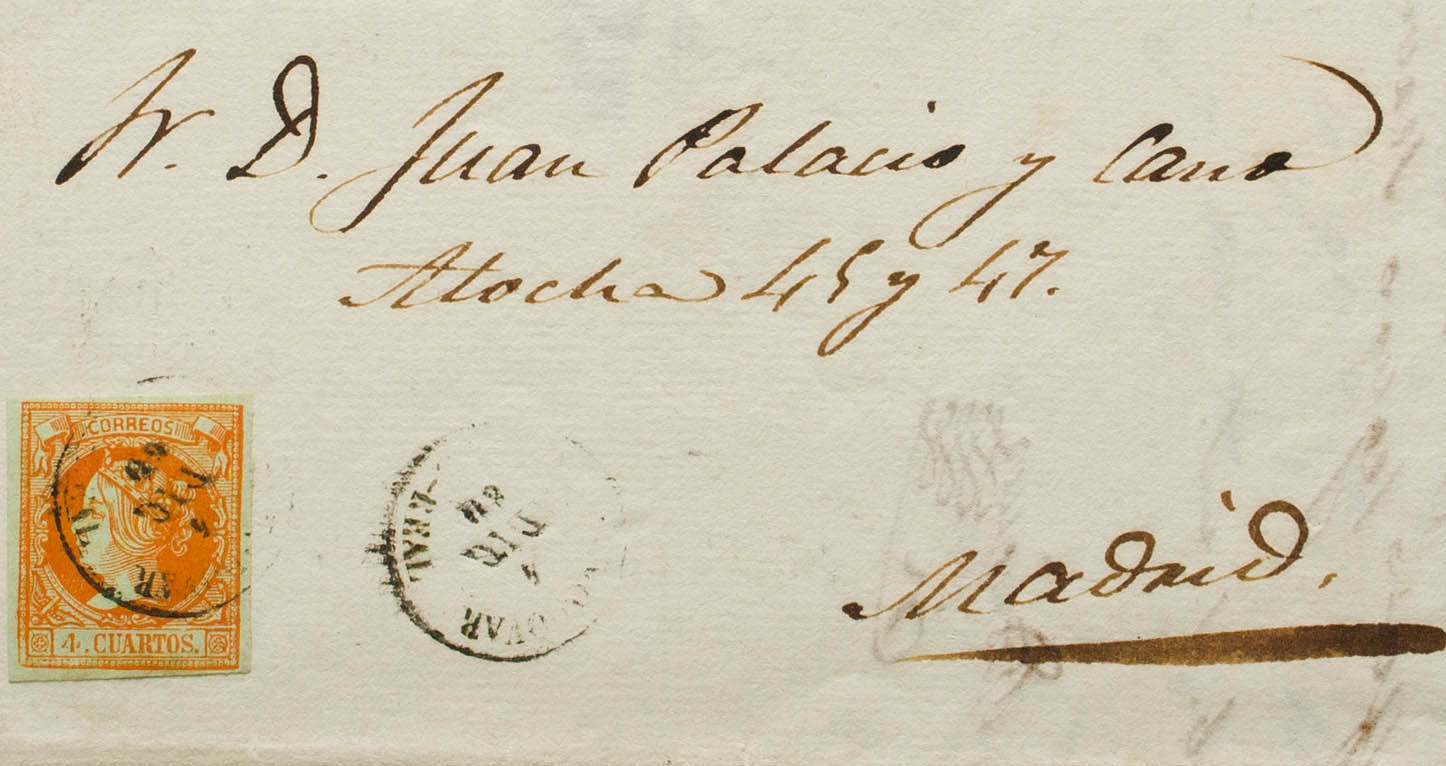 Sr. D. Juan Palacio y Cano
Atocha 45 y 47.
CORREOS
4. CUARTOS.
DIC
60
REAL
OVAR
Madrid.